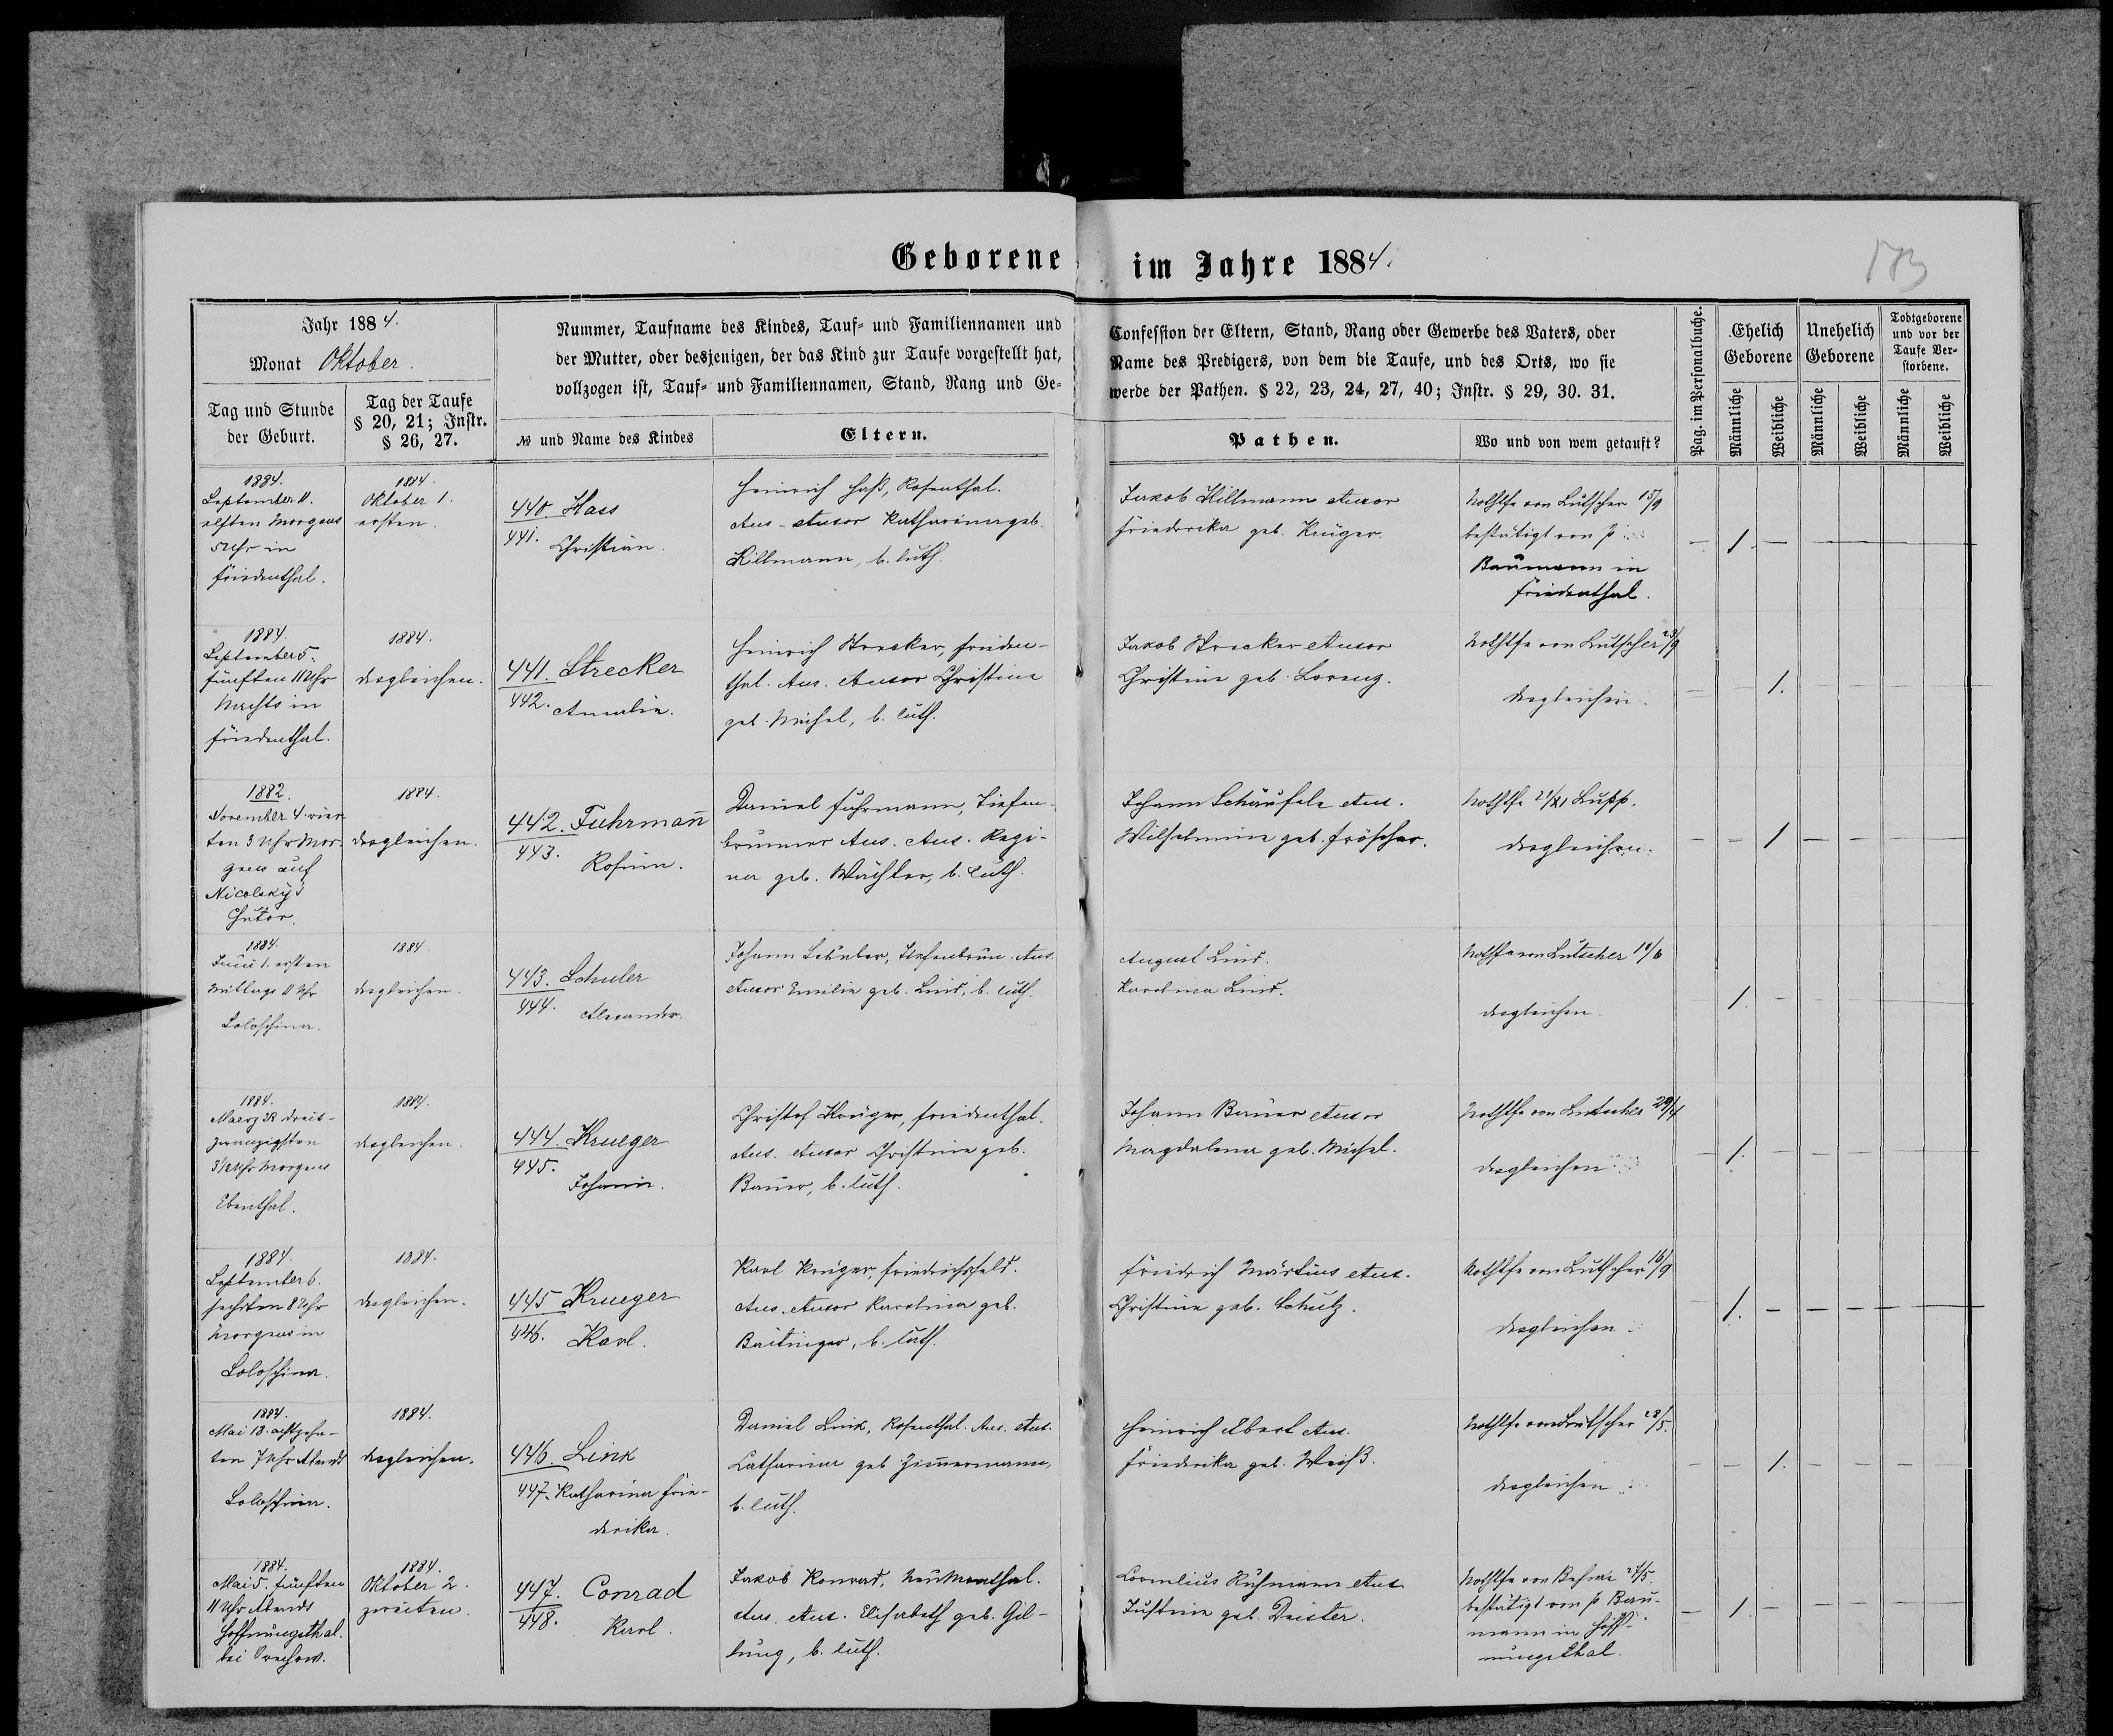 Geborene im Jahre 1884.
173
Jahr 1884.
Monat Oktober.
Tag und Stunde der Geburt.
Tag der Taufe § 20, 21; Instr. § 26, 27.
Nummer, Taufname des Kindes, Tauf- und Familiennamen und
der Mutter, oder desjenigen, der das Kind zur Taufe vorgestellt hat,
vollzogen ist, Tauf- und Familiennamen, Stand, Rang und Ge-
№ und Name des Kindes
Eltern.
Confession der Eltern, Stand, Rang oder Gewerbe des Vaters, oder
Name des Predigers, von dem die Taufe, und des Orts, wo sie
werde der Pathen. § 22, 23, 24, 27, 40; Instr. § 29, 30. 31.
Pathen.
Wo und von wem getauft?
Pag. im Personalbuche.
Ehelich Geborene
Unehelich Geborene
Todtgeborene und vor der Taufe Ver-storbene.
Männliche
Weibliche
Männliche
Weibliche
Männliche
Weibliche
1884.
September 11.
elften Morgens
5 Uhr in
Friedenthal.
1884.
Oktober 1.
ersten.
440. Hass
441. Christian.
Heinrich Haß, Rosenthal.
Aus. Auxor Katharina geb.
Killmann, b. luth.
Jakob Killmann Auxor
Friederika geb. Krüger.
Nothtfe von Lutscher 15/9
bestätigt von P.
Baumann in
Friedenthal.
1.
1884.
September 5.
fünften 11 Uhr
Nachts in
Friedenthal.
1884.
desgleichen.
441. Strecker
442. Amalie.
Heinrich Strecker, Frieden-
thal. Aus. Auxor Christine
geb. Michel, b. luth.
Jakob Strecker Auxor
Christine geb. Lorenz.
Nothtfe von Lutscher 23/9
desgleichen.
1.
1882.
November 4. vier-
ten 3 Uhr Mor-
gens auf
Nicolskys
Chutor.
1884.
desgleichen.
442. Fuhrmañ
443. Rosine.
Daniel Fuhrmann, Tiefen-
brunner Aus. Aux. Regi-
na geb. Wächter, b. luth.
Johann Schäufele Aux.
Wilhelmine geb. Fröscher.
Nothtfe 21/XI Lupp.
desgleichen.
1
1884.
Juni 1. ersten
Mittags 11 Uhr
Soloschina.
1884.
desgleichen.
443. Schuler
444. Alexander.
Johann Schuler, Tiefenbrun. Aus.
Auxor Emilie geb. Lind, b. luth.
August Lind.
Karolina Lind.
Nothtfe von Lutscher 10/6
desgleichen
1.
1884.
Maerz 23 drei-
zwanzigsten
3 Uhr Morgens
Ebenthal.
1884.
desgleichen.
444. Krueger
445. Johann.
Christof Krüger, Friedenthal.
Aus. Auxor Christine geb.
Bauer, b. luth.
Johann Bauer Auxor
Magdalena geb. Michel.
Nothtfe von Lutscher 29/4
desgleichen
1.
1884.
September 6.
sechsten 8 Uhr
Morgens in
Soloschina.
1884.
desgleichen.
445 Krueger
446. Karl.
Karl Krüger, Friedrichsfeld.
Aus. Auxor Karolina geb.
Baitinger, b. luth.
Friedrich Märtius Aux.
Christine geb. Schulz.
Nothtfe von Lutscher 16/9
desgleichen.
1.
1884.
Mai 18. achtzehn-
ten 7 Uhr Abends
Soloschina.
1884.
desgleichen.
446. Link
447. Katharina Frie-
derika.
Daniel Link, Rosenthal. Aus. Aux.
Catharina geb. Zimmermann,
b. luth.
Heinrich Ebert Aux.
Friederika geb. Weiß.
Nothtfe von Lutscher 28/5.
desgleichen.
1.
1884.
Mai 5. fünften
11 Uhr Abends
Hoffnungsthal.
bei Orechow.
1884.
Oktober 2.
zweiten.
447. Conrad
448. Karl.
Jakob Konrad, Neumonthal.
Aus. Aux. Elisabeth geb. Gil-
lung, b. luth.
Cornelius Ruhmann Aux
Justine geb. Deister.
bestätigt von P. Bau-
mann in Hoff-
nungsthal.
1.